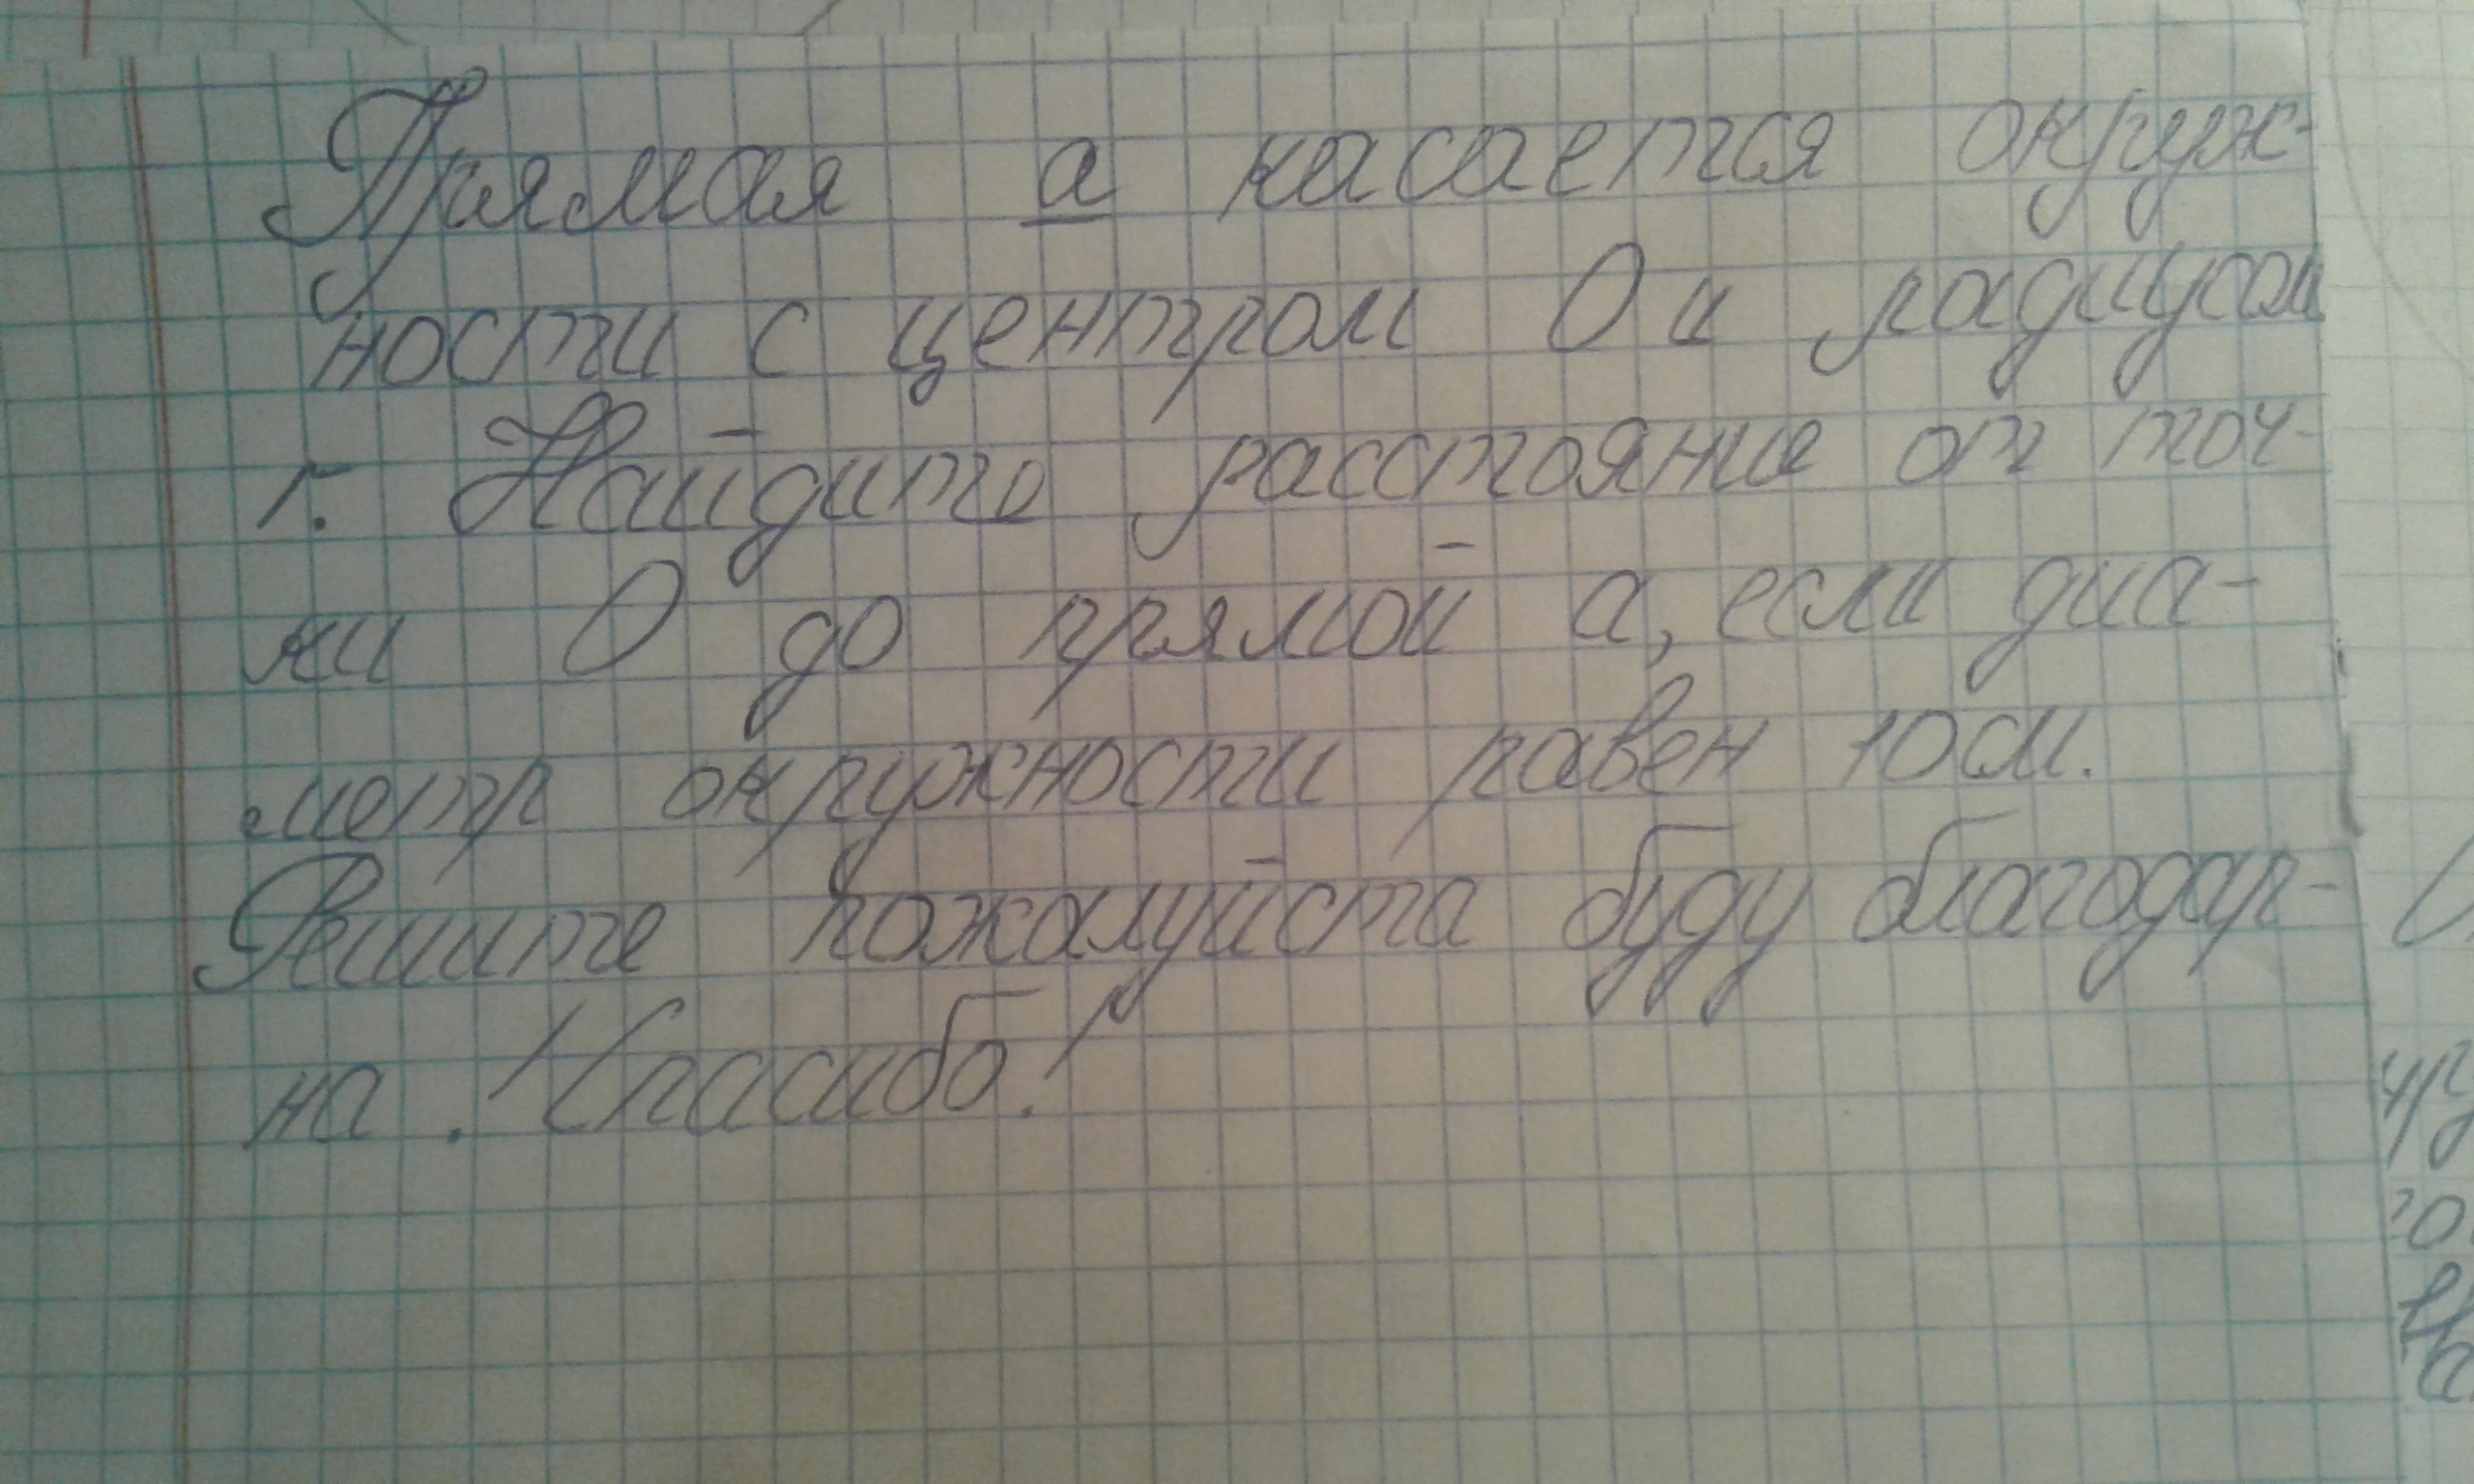 Прямая а касается окруж-
ности с центром О и радиусом
r. Найдите расстояние от точ-
ки О до прямой а, если диа-
метр окружности равен 10 см.
Решите пожалуйста буду благодар-
на! Спасибо!